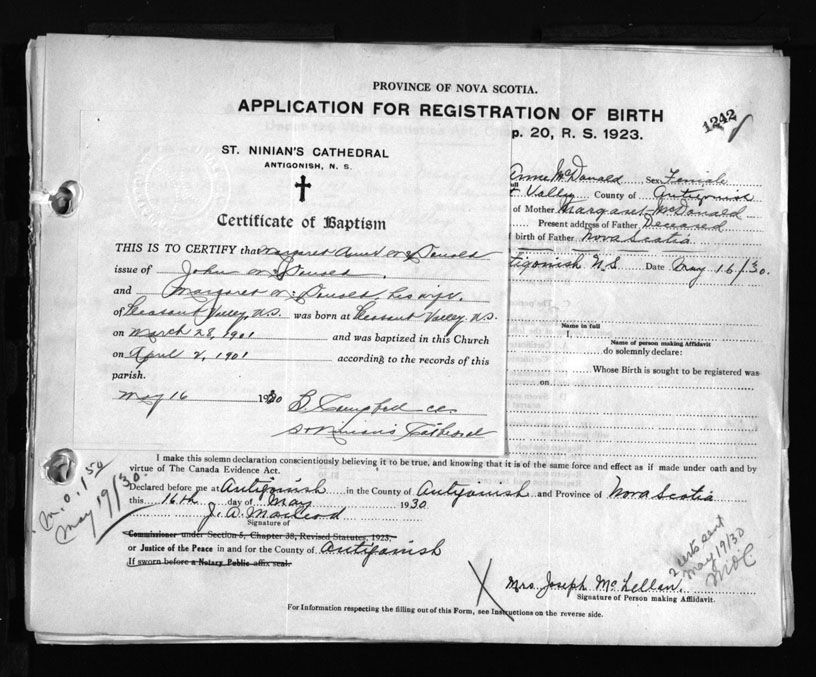 PROVINCE OF NOVA SCOTIA.
APPLICATION FOR REGISTRATION OF BIRTH
1242
p. 20, R. S. 1923.
ST. NINIAN'S CATHEDRAL
ANTIGONISH, N. S.
Certificate of Baptism
THIS IS TO CERTIFY that Margaret Anne McDonald
issue of John McDonald.
and Margaret McDonald, his wife.
of Pleasant Valley, N.S. was born at Pleasant Valley, N.S.
on March 28, 1901 and was baptized in this Church
on April 2, 1901 according to the records of this
parish.
May 16 1930
B. Campbell cc.
St Ninian's Cathedral
Anne McDonald Sex Female
Valley County of Antigonish
of Mother Margaret McDonald
Present address of Father Deceased
birth of Father Nova Scotia
tigonish N.S. Date May 16/30.
Name in full
I,
Name of person making Affidavit
do solemnly declare:
Whose Birth is sought to be registered was
on
I make this solemn declaration conscientiously believing it to be true, and knowing that it is of the same force and effect as if made under oath and by
virtue of The Canada Evidence Act.
Declared before me at Antigonish in the County of Antigonish and Province of Nova Scotia
this 16th day of May 1930
J. A. MacLeod
Signature of
Commissioner under Section 5, Chapter 38, Revised Statutes, 1923,
or Justice of the Peace in and for the County of Antigonish
If sworn before a Notary Public affix seal.
M.O. 1 50
May 19/30.
2 certs sent
May 19/30
MOC
Mrs Joseph McLellan.
Signature of Person making Affidavit.
For Information respecting the filling out of this Form, see Instructions on the reverse side.